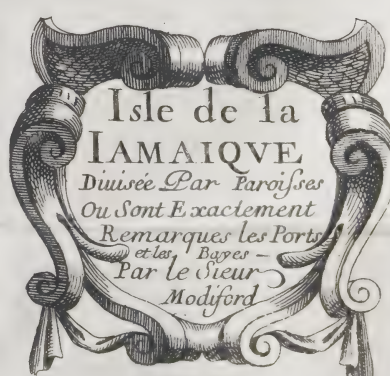 Isle de la
IAMAIQVE
Diuisée Par Paroisses
Ou Sont Exactement
Remarques les Ports
et les Bayes –
Par le Sieur
Modiford